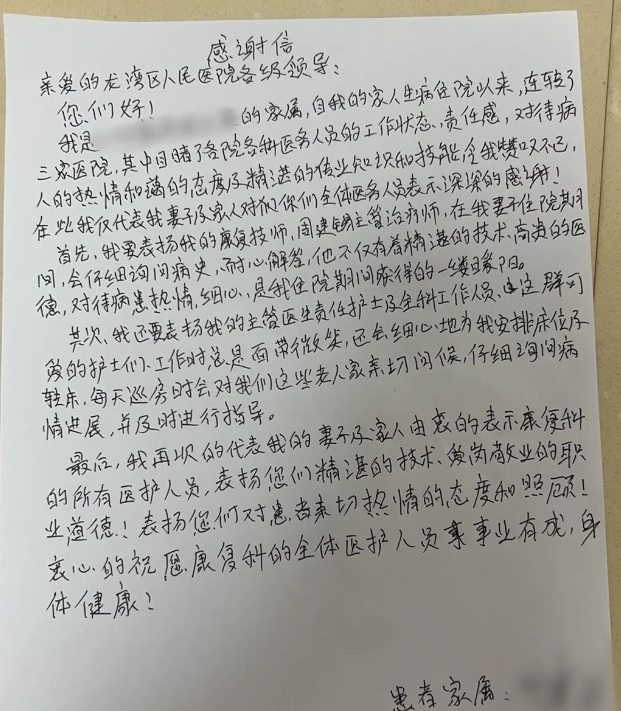 感谢信
亲爱的龙湾区人民医院各级领导:
您们好!
我是 的家属,自我的家人生病住院以来,连转了
三家医院,其中目睹了各院各科医务人员的工作状态、责任感,对待病
人的热情和 的态度及精湛的专业知识和技能,令我赞口不已,
在此我仅代表我妻子及家人对 你们全体医务人员表示深深的感谢!
首先,我要表扬我的康复技师,周建 主管治疗师,在我妻子住院期
间,会仔细询问病史,耐心解答,他不仅有着精湛的技术、高尚的医
德,对待病患热情,细心,是我住院期间获得的一缕暖阳。
其次,我还要表扬我的主管医生责任护士及全科工作人员, 这群可
爱的护士们、工作时总是面带微笑,还会细心地为我安排床位及
转床,每天巡房时会对我们这些老人家亲切问候,仔细询问病
情进展,并及时进行指导。
最后,我再次的代表我的妻子及家人由衷的表示康复科
的所有医护人员,表扬您们精湛的技术、爱岗敬业的职
业道德!表扬您们对患者亲切热情的态度和照顾!
衷心的祝愿康复科的全体医护人员 事业有成,身
体健康!
患者家属: